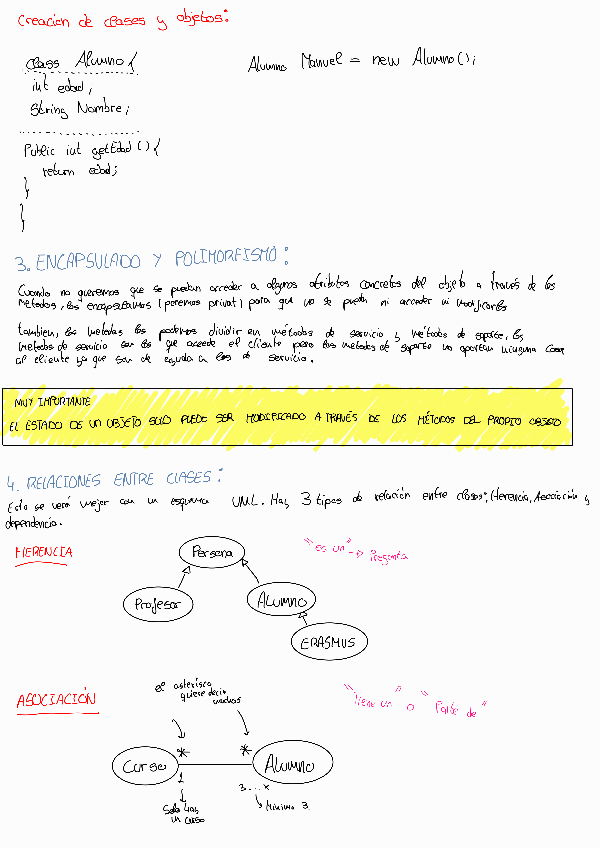 Creación de clases y objetos:
class Alumno {
int edad;
String Nombre;
Public int getEdad () {
return edad;
}
}
Alumno Manuel = new Alumno();
3. ENCAPSULADO Y POLIMORFISMO:
Cuando no queremos que se puedan acceder a algunos atributos concretos del objeto a través de los
metodos, los encapsulamos (ponemos privat) para que no se pueda ni acceder ni modificarlos
tambien, los metodos los podemos dividir en métodos de servicio y métodos de soporte, los
metodos de servicio son los que accede el cliente pero los metodos de soporte no aportan ninguna cosa
al cliente ya que son de ayuda a los de servicio.
MUY IMPORTANTE
EL ESTADO DE UN OBJETO SOLO PUEDE SER MODIFICADO A TRAVÉS DE LOS MÉTODOS DEL PROPIO OBJETO
4. RELACIONES ENTRE CLASES:
Esto se verá mejor con un esquema UML. Hay 3 tipos de relación entre clases: (Herencia, Asociación y
dependencia.
HERENCIA
Persona
"es un" -> Pregunta
Profesor
ALUMNO
ERASMUS
ASOCIACIÓN
el asterisco
quiere decir
muchos
"Tiene un" o "Parte de"
Curso
*
*
Alumno
1
3...*
Solo hay
un curso
Minimo 3